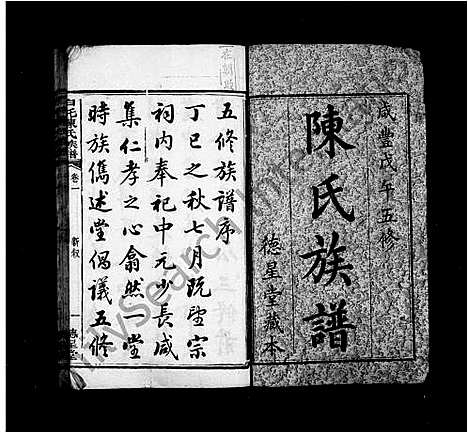 咸豐戊午五修
陳氏族譜
德星堂藏本
五修族譜序
丁巳之秋七月既望宗
祠内奉祀中元少長咸
集仁孝之心翕然一堂
時族儁述堂偶議五修
陳氏族譜
卷一
新叙
一